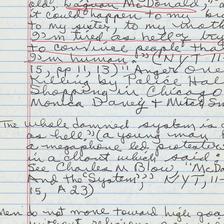 old, Laquan McDonald,
it could happen to my
to my sister, to my mother
I'm tired as hell of
to convince people that
I'm human." (NYT 11
15, pp 11, 13) "Anger Over
Killing by Police Hal
Shopping in Chicago
Monica Davey & Mitch Smi
The whole damned system is
as hell," (a young man
a megaphone led protesters
in a chant which said:
See Charles M Blow, "McDo
And the 'System'" NYT, 11
15, A23)
men do not move toward high